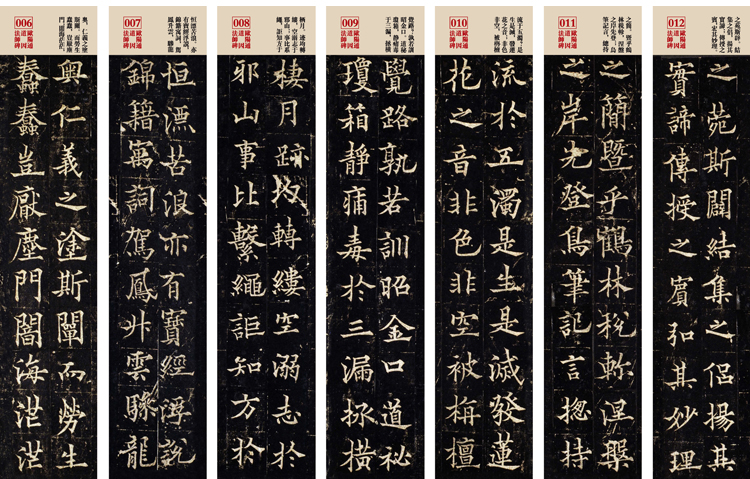 006
歐陽通
道因
法師碑
奥仁義之塗斯闡而勞生
蠢蠢豈厭塵門闇海茫茫
007
歐陽通
道因
法師碑
恒漂苦浪亦有寶經浮說
錦籍寓詞駕鳳升雲驂龍
008
歐陽通
道因
法師碑
棲月跡均轉縷空溺志於
邪山事比繫繩詎知方於
009
歐陽通
道因
法師碑
覺路孰若訓昭金口道祕
瓊箱靜痡毒於三漏拯橫
010
歐陽通
道因
法師碑
流於五濁是生是滅發蓮
花之音非色非空被栴檀
011
歐陽通
道因
法師碑
之蘭暨乎鶴林稅軫涅槃
之岸先登鳥筆記言揔持
012
歐陽通
道因
法師碑
之菀斯闢結集之侶揚其
實諦傳授之賓弘其妙理